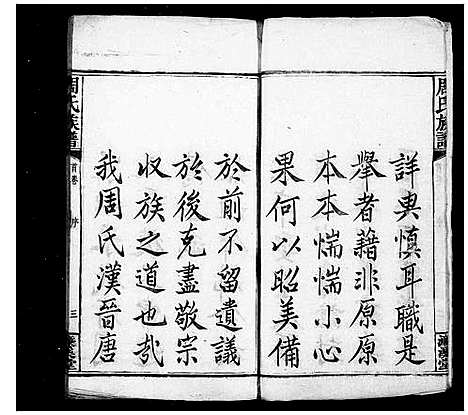 周氏族譜
詳與慎耳職是
舉者藉非原原
本本惴惴小心
果何以昭美備
於前不留遺議
於後克盡敬宗
收族之道也哉
我周氏漢晉唐
周氏族譜
首卷
序
三